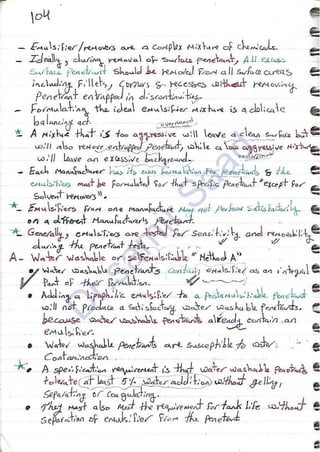 104
- Emulsifier/removers are a complex Mixture of chemicals.
- Ideally, during removal of surface penetrant, All excess
Surface Penetrant should be removed from all surface areas
including fillets, corners & recesses without removing
Penetrant entrapped in discontinuities.
- Formulating the ideal emulsifier mixture is a delicate
balancing act.
* A Mixture that is too aggressive will leave a clean surface but
will also remove entrapped penetrant, while a low aggressive Mixture
will leave an excessive background.
- Each Manufacturer has its own formulation for penetrants & the
emulsifiers must be formulated for that specific Penetrant "except for
Solvent removers".
* Emulsifiers from one manufacture may not perform satisfactorily
on a different Manufacturer's Penetrant.
* Generally, emulsifiers are tested for sensitivity and removability
during the penetrant tests.
A- Water Washable or Self emulsifiable "Method A"
• Water washable Penetrants contain emulsifier as an integral
Part of their formulation.
• Adding a lipophilic emulsifier to a Postemulsifiable Penetrant
will not Produce a satisfactory water washable Penetrants.
because water washable penetrants already contain an
emulsifier.
• Water washable Penetrants are susceptible to water
Contamination.
* • A specification requirement is that water washable Penetrants
tolerate (at least 5% water addition) without gelling,
Separating or coagulating.
• They must also meet the requirement for tank life without
Separation of emulsifier from the penetrant